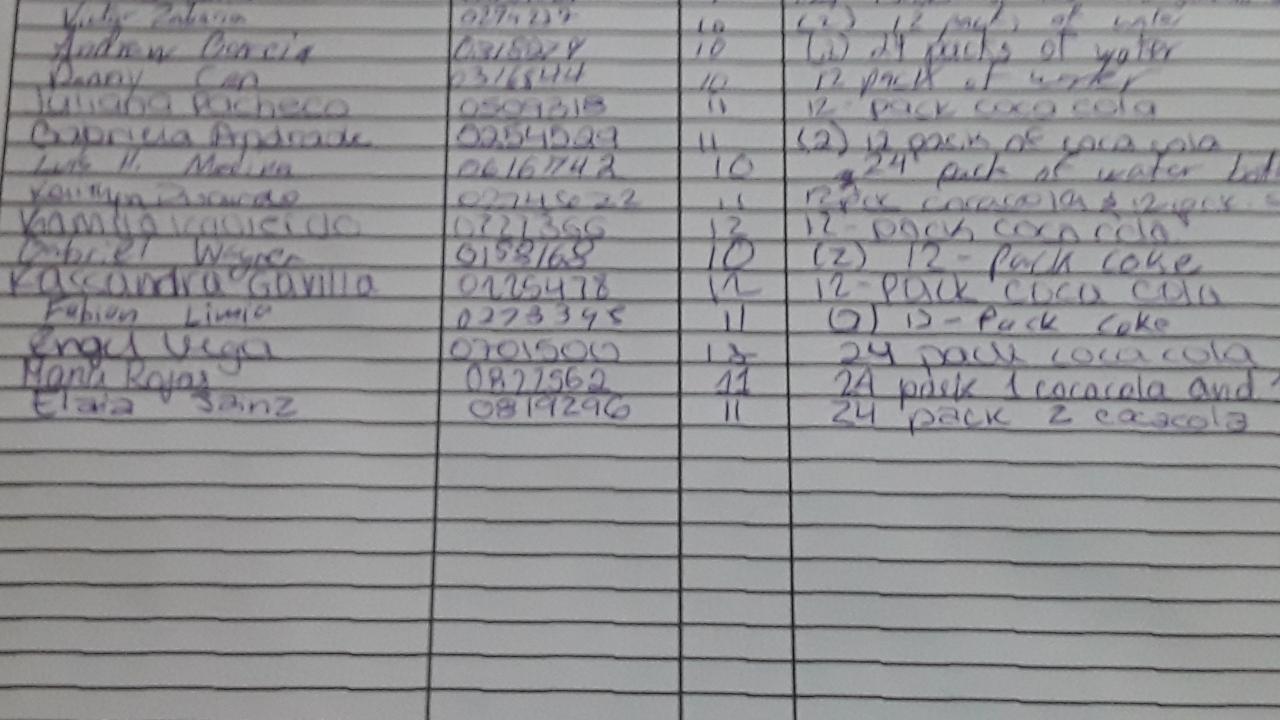 (2) 12 packs of water
Andrew Garcia 10 (2) 24 packs of water
Danny Can 0316844 10 12 pack of water
Juliana Pacheco 0509318 11 12-pack coca cola
Gabriela Andrade 0254529 11 (2) 12 packs of coca cola
Luis H. Medina 0616742 10 24 pack of water
11 12 pck cocacola & 12 pck
12 12-pack coca cola
Gabriel Wagner 0158168 10 (2) 12-Pack coke
Kassandra Gavilla 0225478 12 12-Pack coca cola
Fabian Limia 0273395 11 (2) 12-Pack Coke
Engel Vega 0701500 12 24 pack coca cola
Maria Rojas 0822562 11 24 pack 1 cocacola and
Elaia Sainz 0819296 11 24 pack 2 cocacola